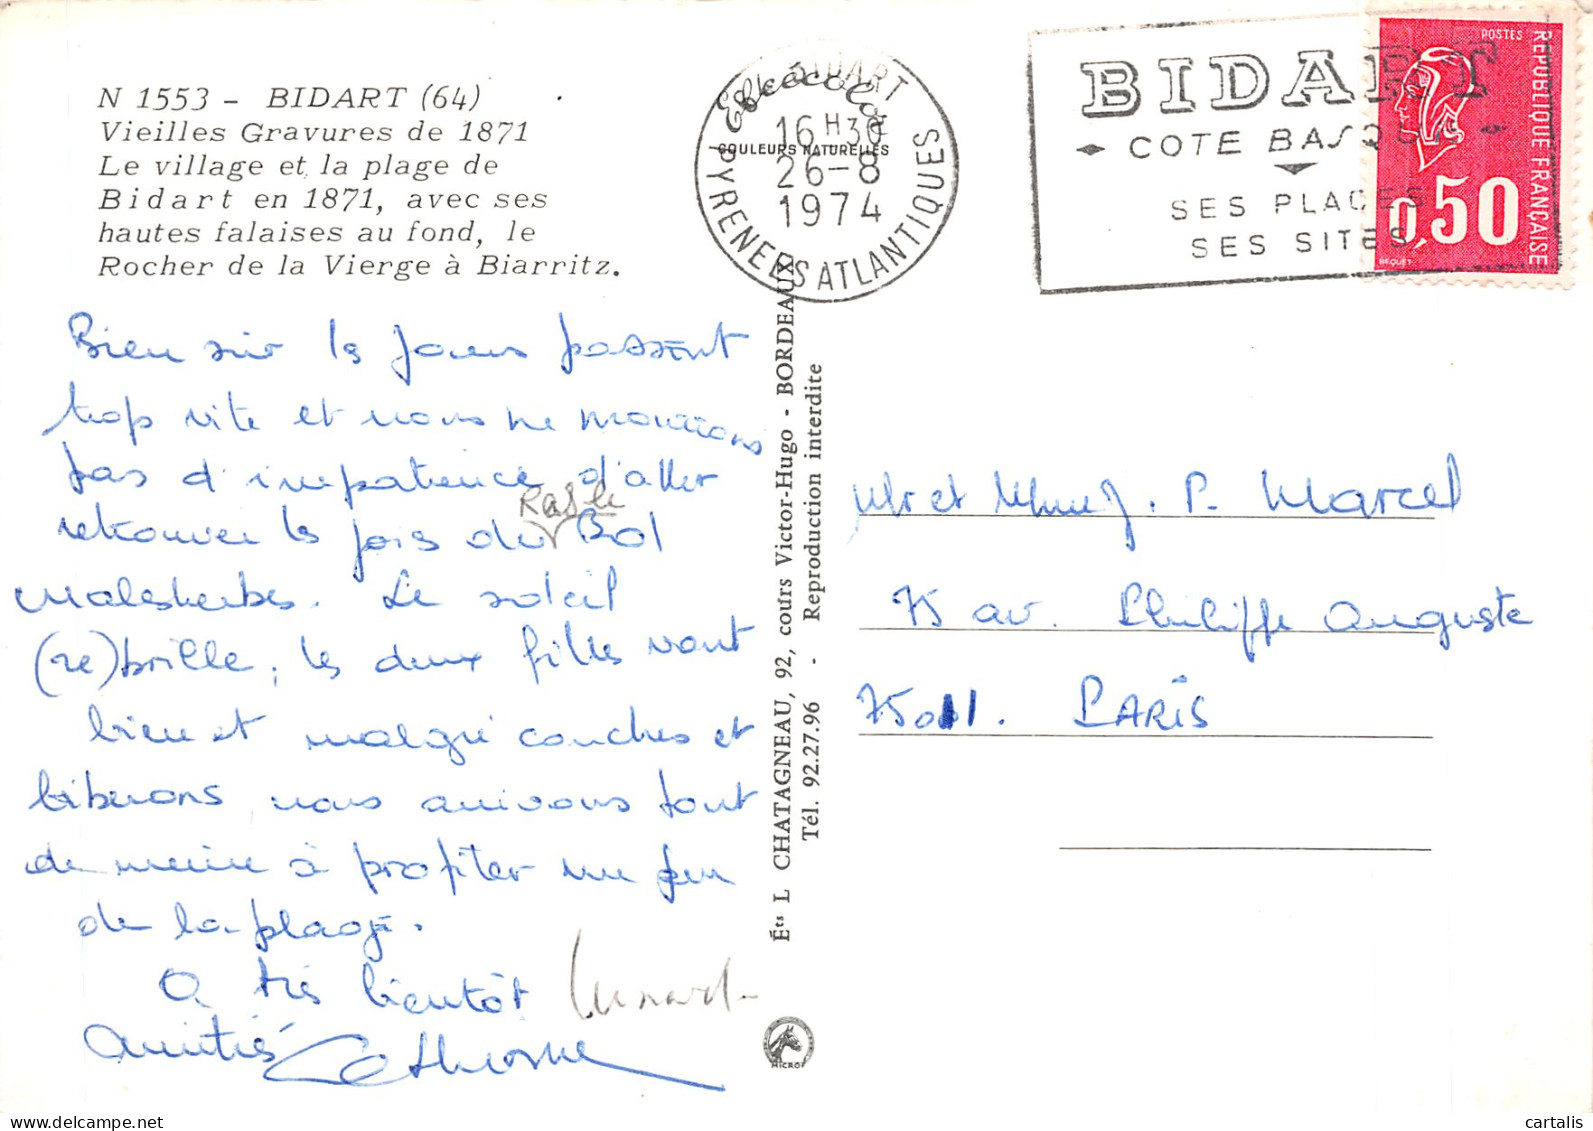 N 1553 - BIDART (64)
Vieilles Gravures de 1871
Le village et la plage de
Bidart en 1871, avec ses
hautes falaises au fond, le
Rocher de la Vierge à Biarritz.
Bien sûr les jours passent
trop vite et nous ne mourrons
pas d'impatience d'aller
retrouver les joies du Bd
Malesherbes. Le soleil
(re)brille, les deux filles vont
bien et malgré couches et
biberons nous arrivons tout
de même à profiter un peu
de la plage.
A très bientôt
Amitiés Catherine
64 BIDART
16H30
26-8
1974
PYRENEES ATLANTIQUES
COULEURS NATURELLES
BIDART
COTE BASQUE
SES PLAGES
SES SITES
POSTES
REPUBLIQUE FRANÇAISE
0,50
BEQUET
Éts L CHATAGNEAU, 92, cours Victor-Hugo - BORDEAUX
Tél. 92.27.96 - Reproduction interdite
Mr et Mme J. P. Marcel
75 av. Philippe Auguste
75011. PARIS
MICRO
cartalis
www.delcampe.net